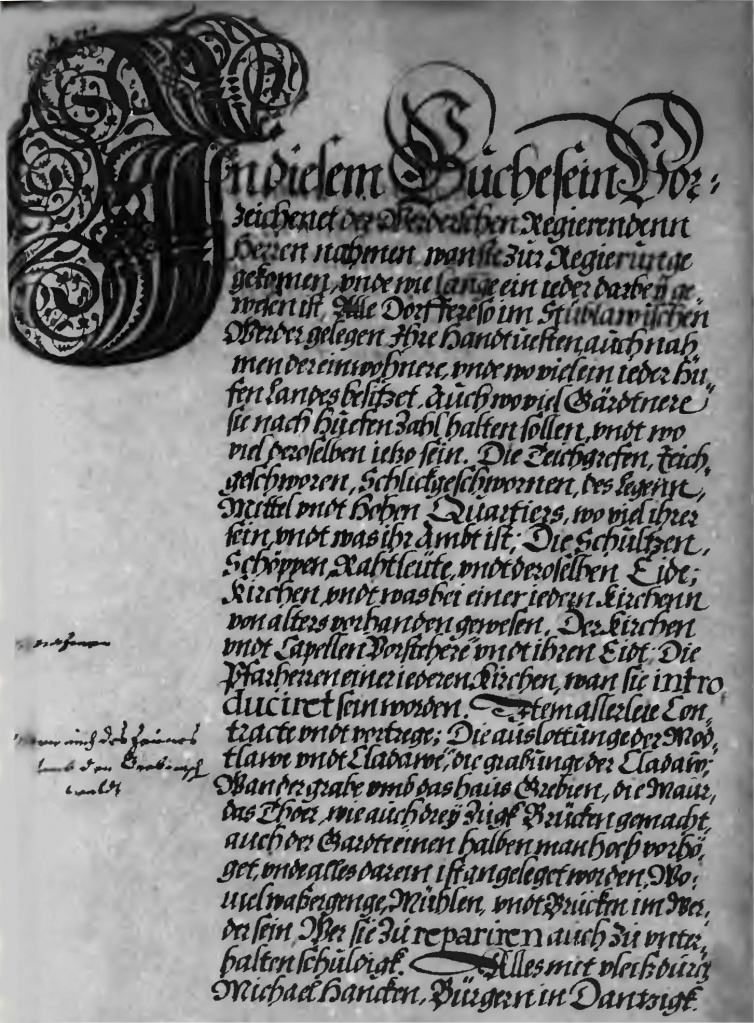 In diesem Buche sein Vor-
zeichenet der Werderschen Regierendenn
Herren nahmen, wan sie zur Regierunge
gekomen, vnde wie lange ein ieder darbey ge-
wesen ist, Alle Dorffere so im Stüblawischen
Werder gelegen Ihre Handtuesten auch nah
men der einwohnere, vnde wo viel ein ieder Hu-
fen Landes besitzet, Auch wo viel Gärdtnere
sie nach Huefen Zahl halten sollen, vndt wo
viel deroselben ietzo sein. Die Teichgrefen, Teich-
geschworen, Schlickgeschwornen, des Legenn,
Mittel vndt Hohen Quartiers, wo viel ihrer
sein, vndt was ihr Ambt ist; Die Schültzen,
Schöppen, Rahtleüte, vndt deroselben Eidt;
Kirchen, vndt was bei einer iedern Kirchenn
von alters vorhanden gewesen, Der Kirchen
vndt Capellen Vorstehere vndt ihren Eidt; Die
Pfarherren einer iederen Kirchen, wan sie intro
duciret sein worden. Item allerleie Con-
tracte vndt vortrege; Die auslottunge der Mod-
tlawe vndt Cladawe, die grabunge der Cladaw,
Wandergrabe vmb das haus Grebien, die Maur,
das Thoer, wie auch drey Zugk Brücken gemacht,
auch der Gardte einen halben man hoch vorhö-
get, vnde alles darein ist angeleget worden, Wo-
uiel waßergenge, Mühlen, vndt Brücken im Wer-
der sein, Wer sie zu repariren auch zu vnter-
halten schuldigk. Alles met vleis durch
Michael Hancken, Bürgern in Dantzigk.
auch des
waldt